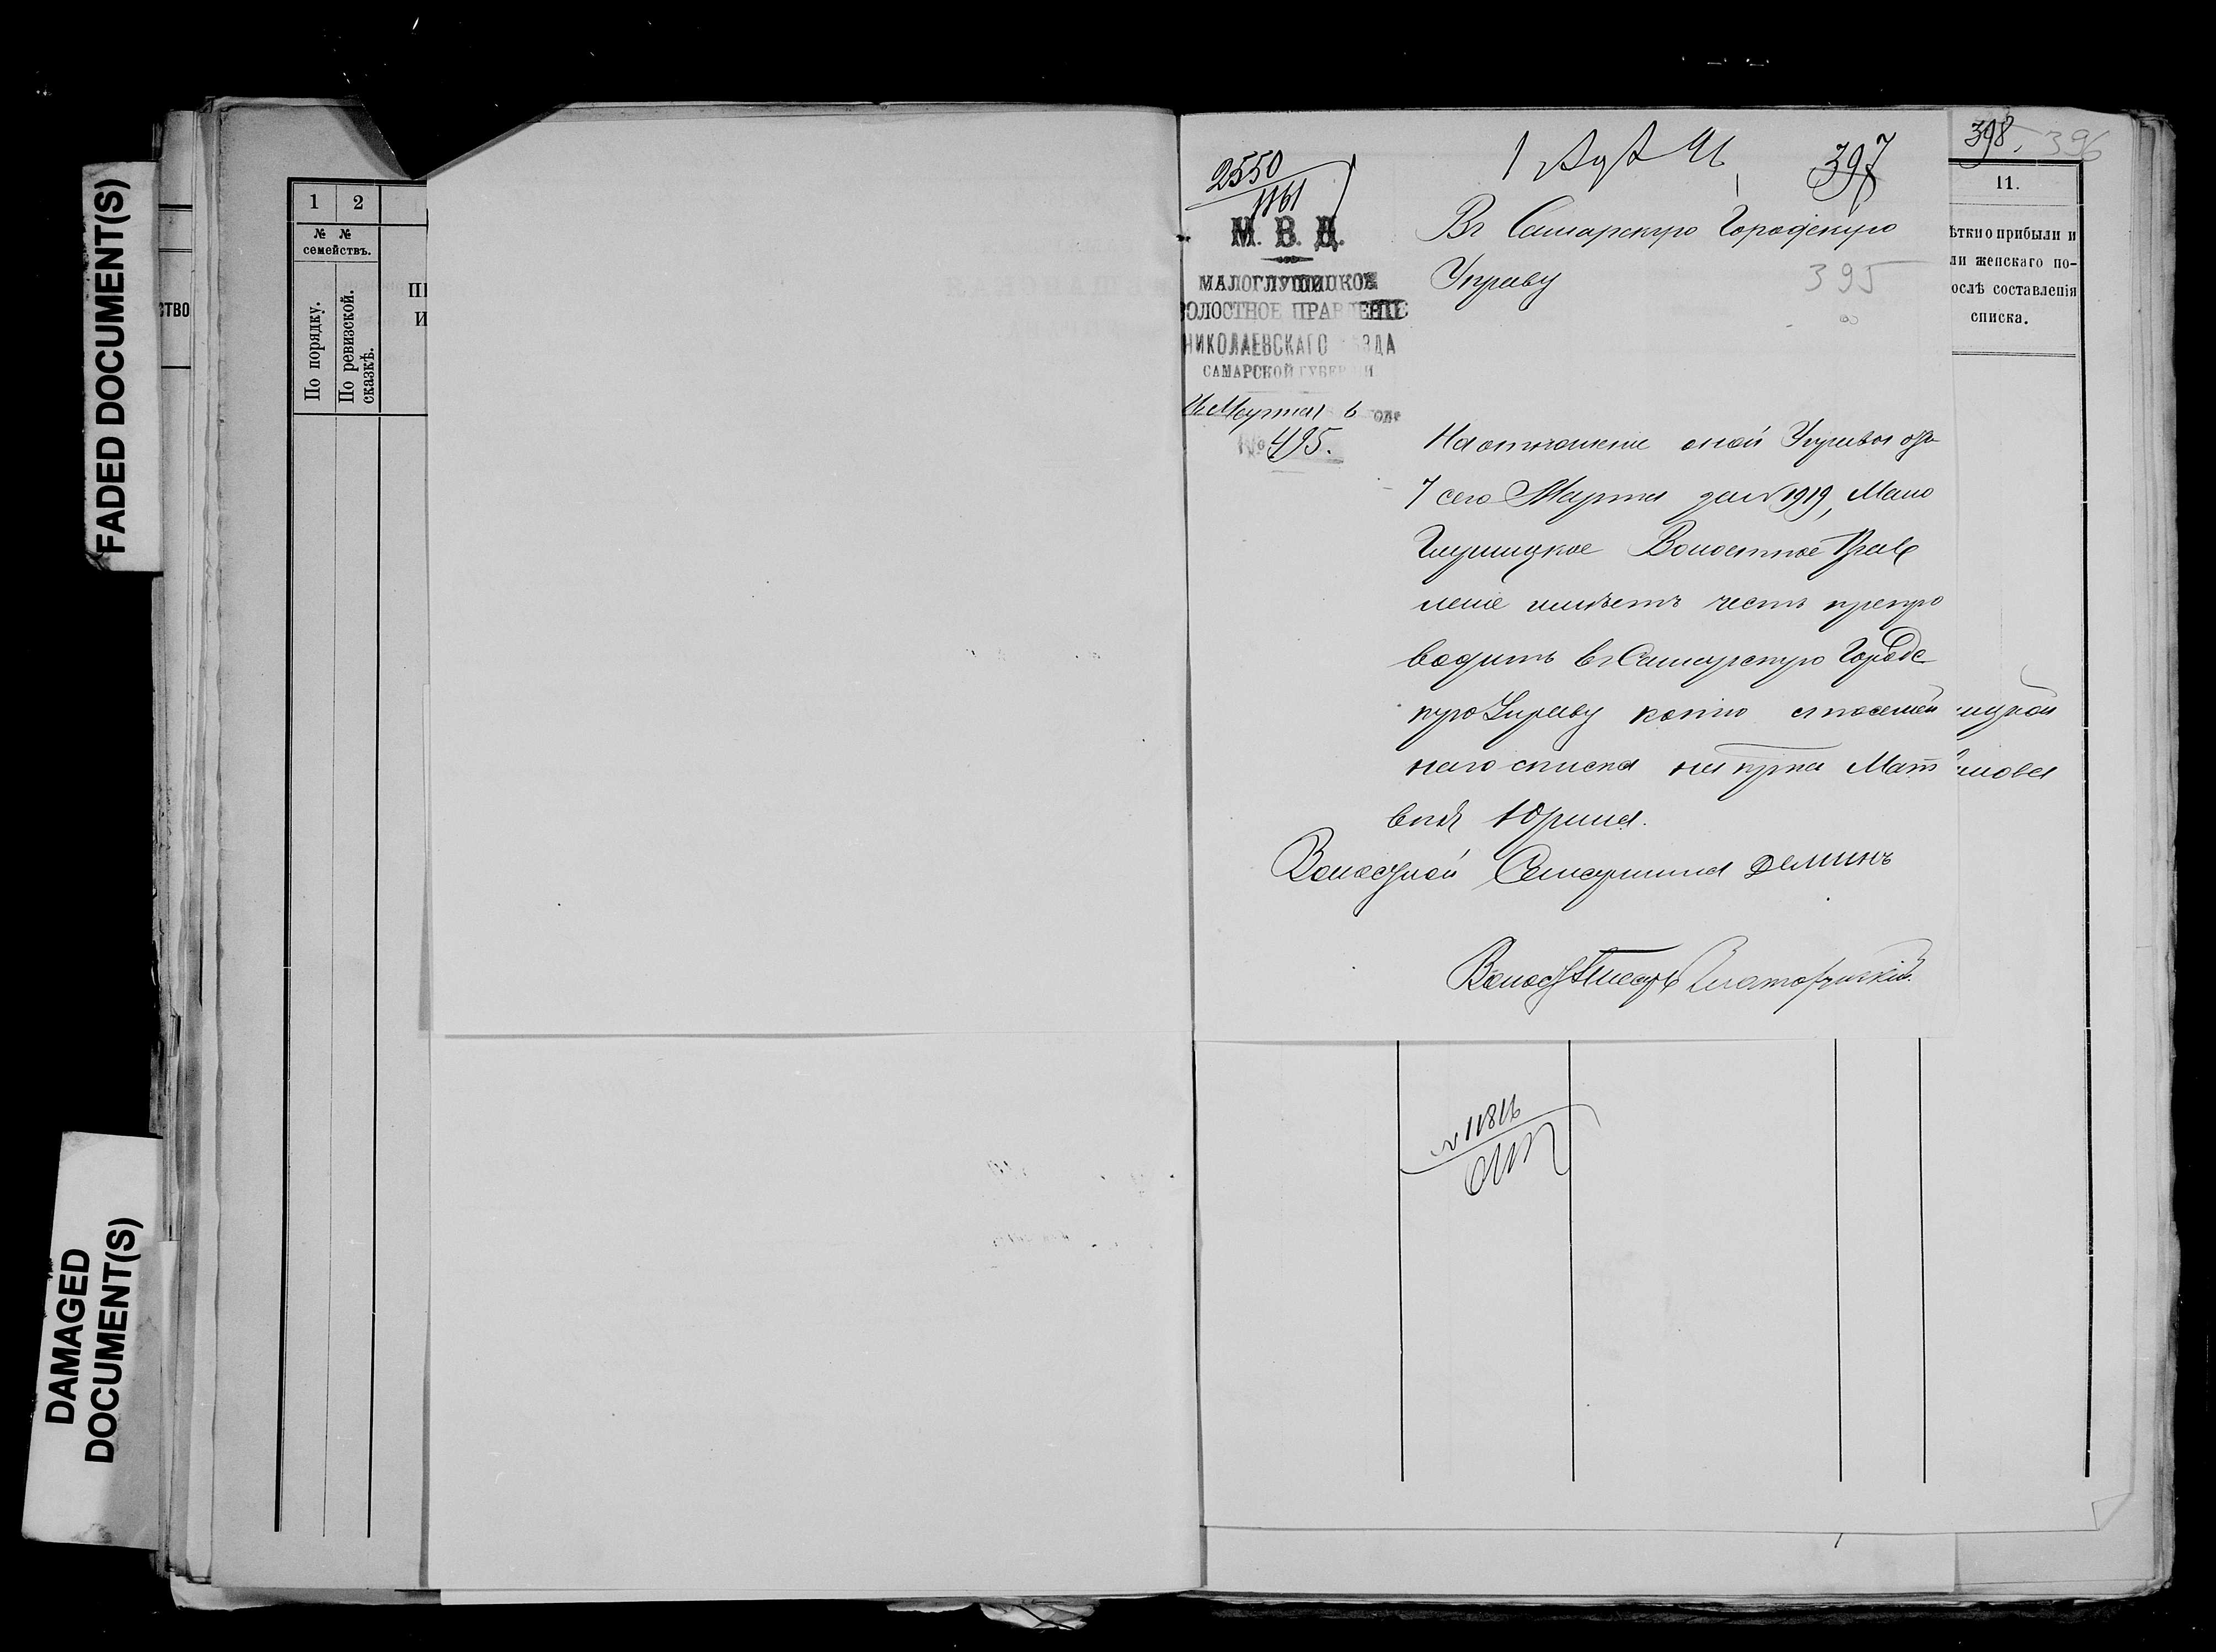 FADED DOCUMENT(S)
DAMAGED
DOCUMENT(S)
СТВО
1 2
№ №
семействъ.
По порядку.
По ревизской.
сказкѣ.
2550
1161
397
398.
396
М. В. Д.
МАЛОГЛУШИЦКОЕ
ВОЛОСТНОЕ ПРАВЛЕНІЕ
НИКОЛАЕВСКАГО УѢЗДА
САМАРСКОЙ ГУБЕРНІИ
Марта 6 года
№ 495.
Въ Самарскую Городскую
Управу
395
На отношеніе оной Управы отъ
7 сего Марта за № 1919, Мало
Глушицкое Волостное Прав
леніе имѣетъ честь препро
водить въ Самарскую Городс
кую Управу копію съ посемей
наго списка на кр‑на Мат
вѣя Юрина.
Волостной Старшина Деминъ
Волост Писарь
11.
ѣтки о прибыли и
ли женскаго по-
ослѣ составленія
списка.
№ 11816